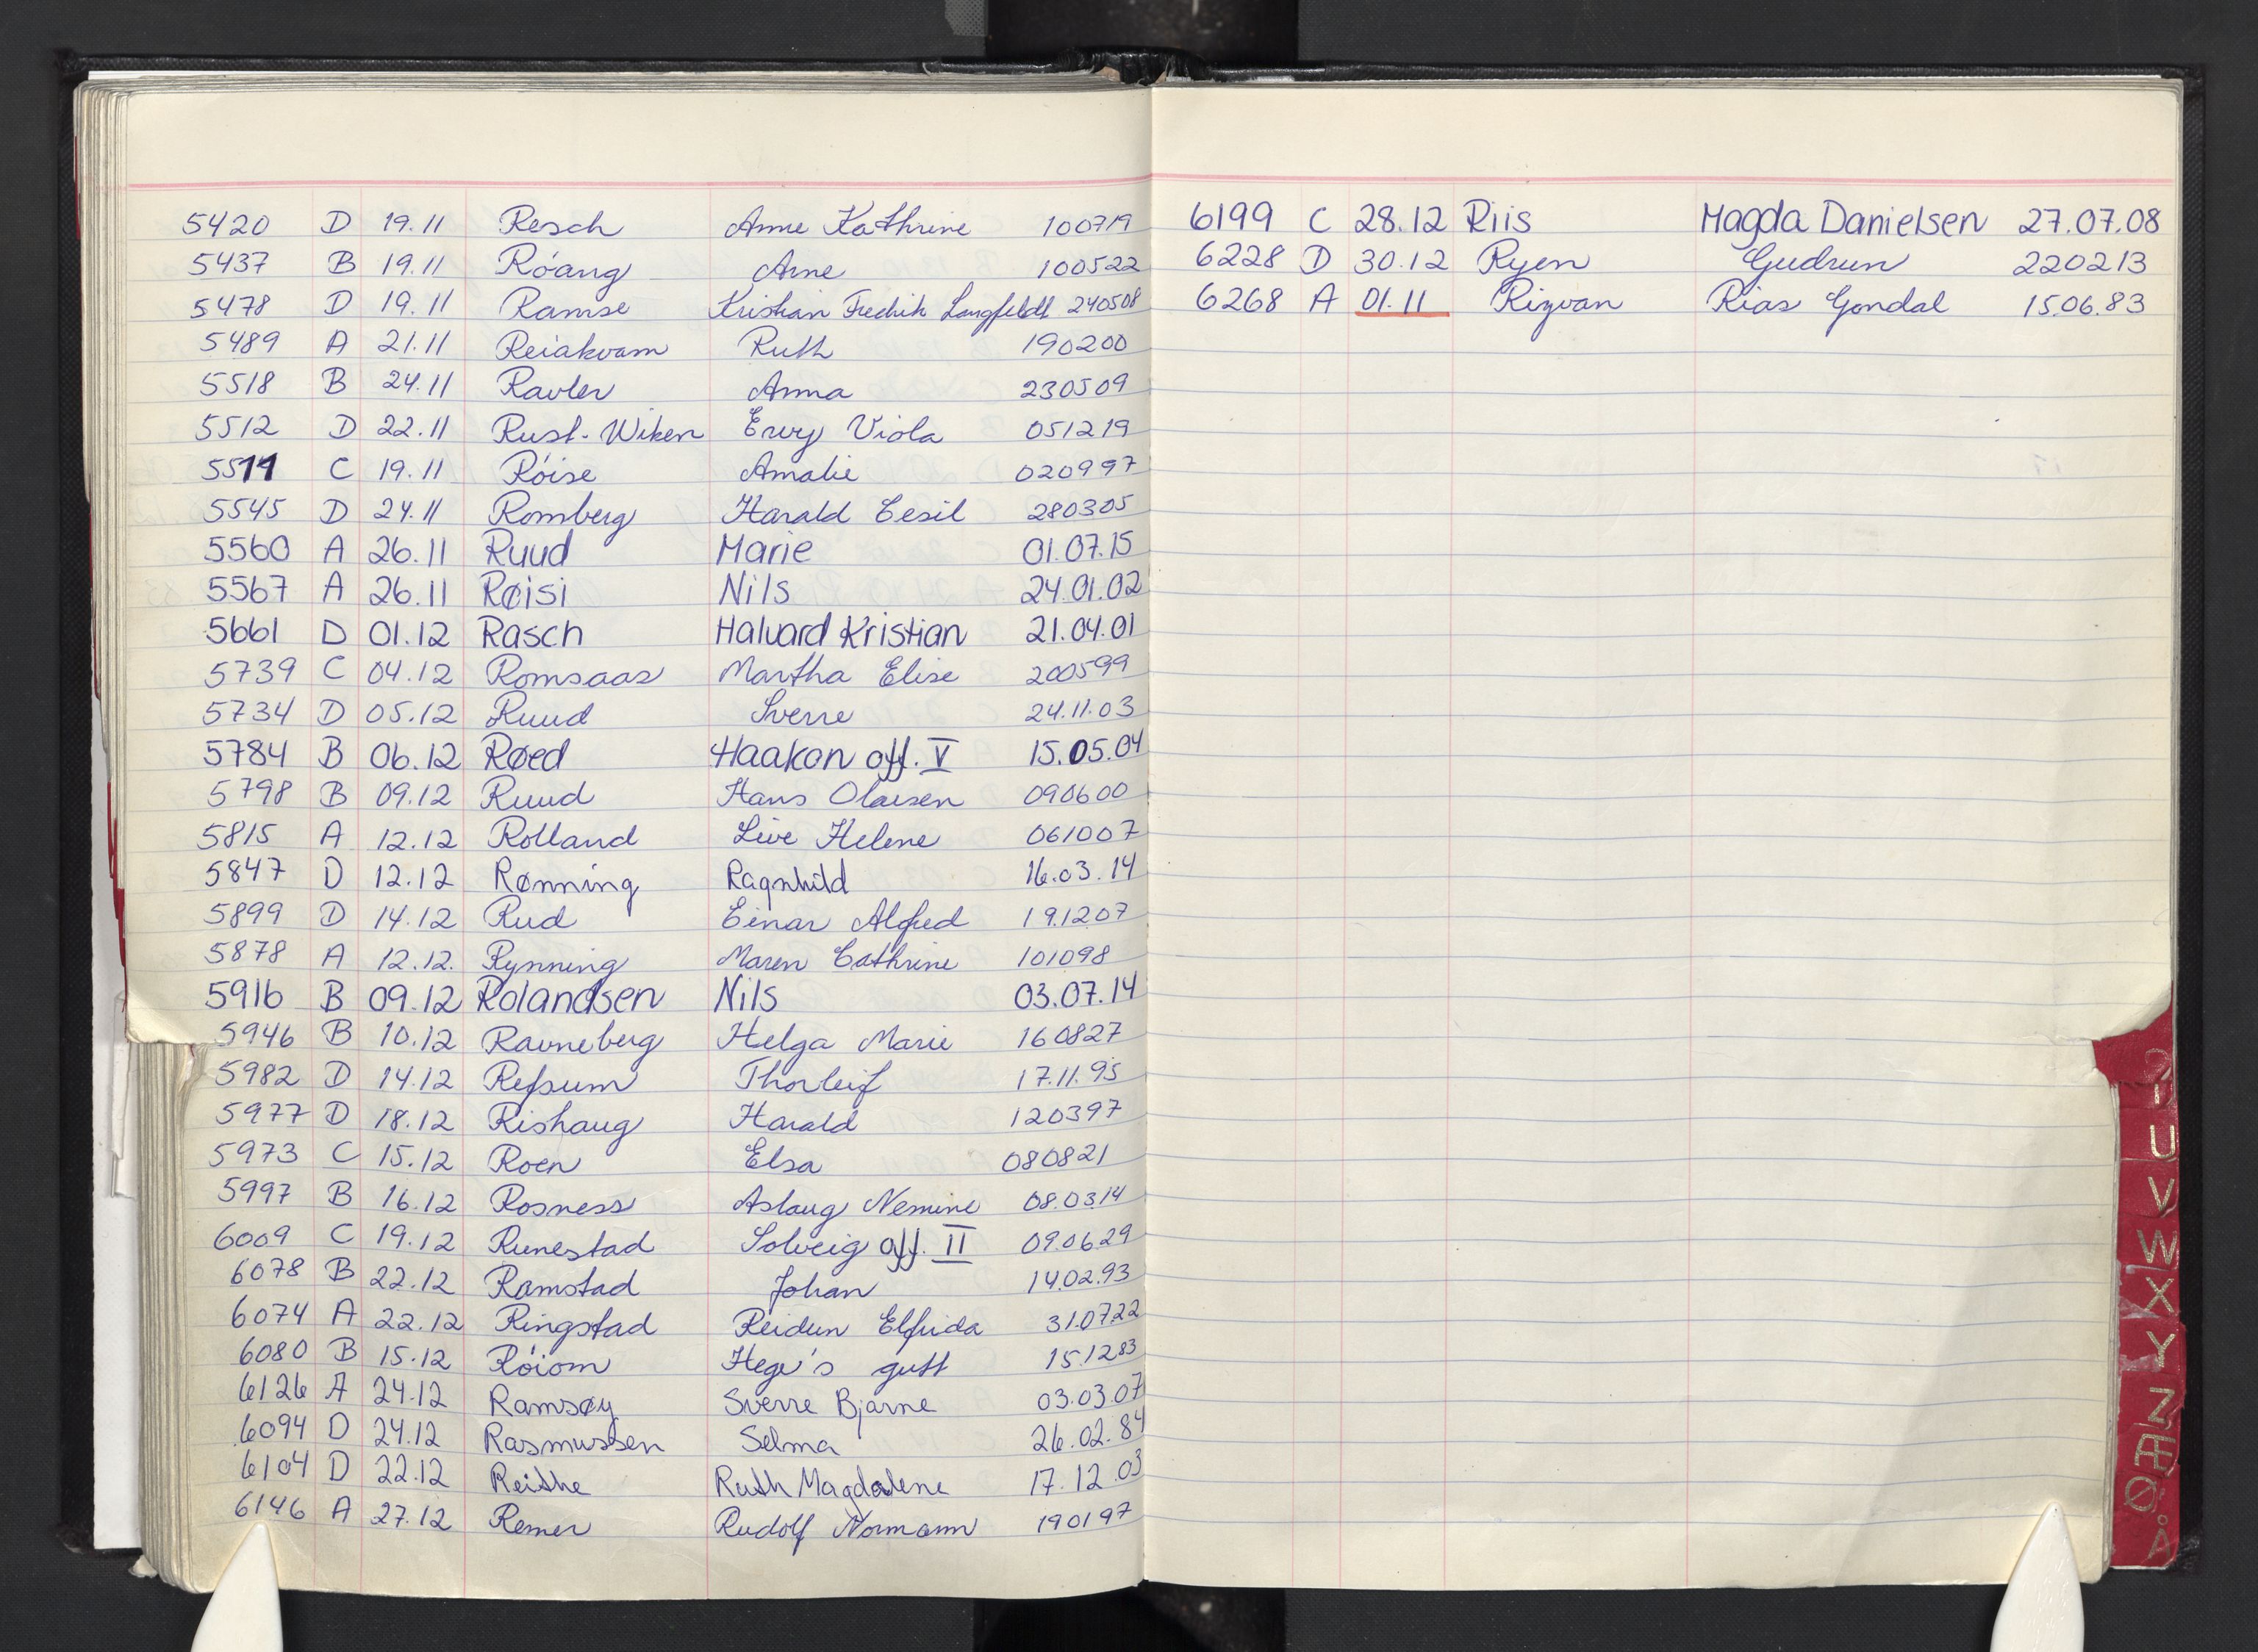 5420 D 19.11 Resch Anne Kathrine 100719
5437 B 19.11 Róang Arne 100522
5478 D 19.11 Ramse Kristian Fredrik Langfeldt 240508
5489 A 21.11 Reiakvam Ruth 190200
5518 B 24.11 Ravler Anna 230509
5512 D 22.11 Rust-Wiken Viola 051219
5511 C 19.11 Róise Amalie 020997
5545 D 24.11 Romberg Harald Cesil 280305
5560 A 26.11 Ruud Marie 01.07.15
5567 A 26.11 Røisi Nils 24.01.02
5661 D 01.12 Rasch Halvard Kristian 21.04.01
5739 C 04.12 Romsaas Martha Elise 200599
5734 D 05.12 Ruud Sverre 24.11.03
5784 B 06.12 Røed Haakon off. V 15.05.04
5798 B 09.12 Ruud Hans Olaisen 090600
5815 A 12.12 Rolland Live Helene 061007
5847 D 12.12 Rønning Ragnhild 16.03.14
5899 D 14.12 Rud Einar Alfred 191207
5878 A 12.12. Rynning Maren Cathrine 101098
5916 B 09.12 Rolandsen Nils 03.07.14
5946 B 10.12 Ravneberg Helga Marie 160827
5982 D 14.12 Refsum Thorleif 17.11.95
5977 D 18.12 Rishaug Harald 120397
5973 C 15.12 Roen Elsa 080821
5997 B 16.12 Rosness Aslaug Nemine 08.03.14
6009 C 19.12 Runestad Solveig off. II 09.06.29
6078 B 22.12 Ramstad Johan 14.02.93
6074 A 22.12 Ringstad Reidun Elfrida 31.07.22
6080 B 15.12 Róiom Hege's gutt 15.12.83
6126 A 24.12 Ramsøy Sverre Bjarne 03.03.07
6094 D 24.12 Rasmussen Selma 26.02.84
6104 D 22.12 Reithe Ruth Magdalene 17.12.03
6146 A 27.12 Remer Rudolf Normann 190197
6199 C 28.12 Riis Magda Danielsen 27.07.08
6228 D 30.12 Ryen Gudrun 220213
6268 A 01.11 Rizvan Rias Gondal 15.06.83
U
V
W
X
Y
Z
Æ
Ø
Å